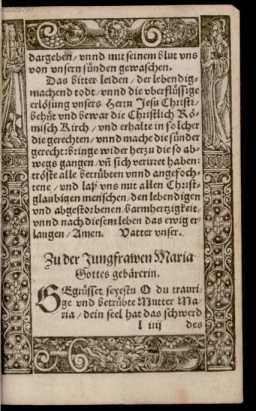 dargeben / vnnd mit seinem blut vns
von vnsern sünden gewaschen.
Das bitter leiden / der lebendig-
machend todt / vnnd die vberflüssige
erlösung vnsers Herrn Jesu Christi /
behüt vnd bewar die Christlich Rö-
misch Kirch / vnd erhalte in solcher
die gerechten / vnnd mache die sünder
gerecht: bringe wider herzu die so ab-
wegs gangen / vñ sich verirret haben:
tröste alle betrübten vnnd angefoch-
tene / vnd laß vns mit allen Christ-
glaubigen menschen / den lebendigen
vnd abgestorbenen / barmhertzigkeit /
vnnd nach diesem leben das ewig er-
langen / Amen. Vatter vnser.
Zu der Jungfrawen Maria
Gottes gebärerin.
GEgrüsset seyestu O du trauri-
ge vnd betrübte Mutter Ma-
ria / dein seel hat das schwerd
l iiij des